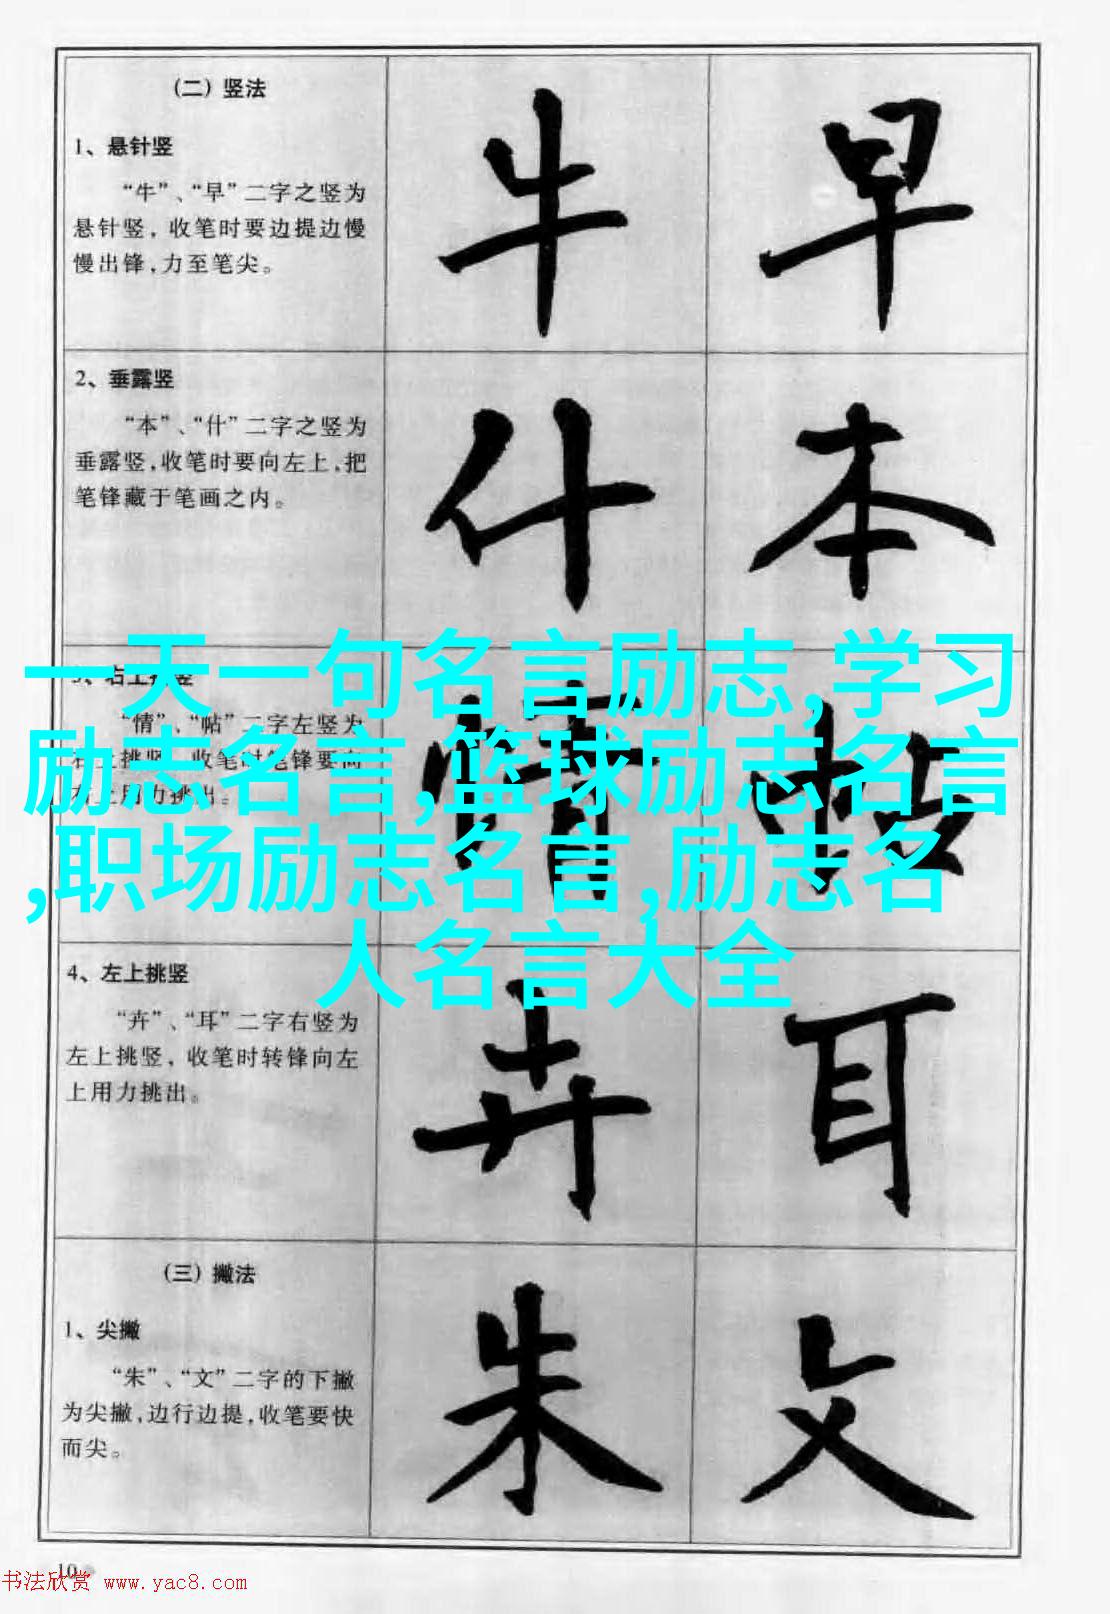 （二）竖法
1、悬针竖
“牛”、“早”二字之竖为
悬针竖，收笔时要边提边慢
慢出锋，力至笔尖。
牛 早
2、垂露竖
“本”、“什”二字之竖为
垂露竖，收笔时要向左上，把
笔锋藏于笔画之内。
什 本
一天一句名言励志,学习
励志名言,篮球励志名言
,职场励志名言,励志名
人名言大全
“情”、“帖”二字左竖为
情 帖
4、左上挑竖
“卉”、“耳”二字右竖为
左上挑竖，收笔时转锋向左
上用力挑出。
卉 耳
（三）撇法
1、尖撇
“朱”、“文”二字的下撇
为尖撇，边行边提，收笔要快
而尖。
朱 文
10
书法欣赏 www.yac8.com